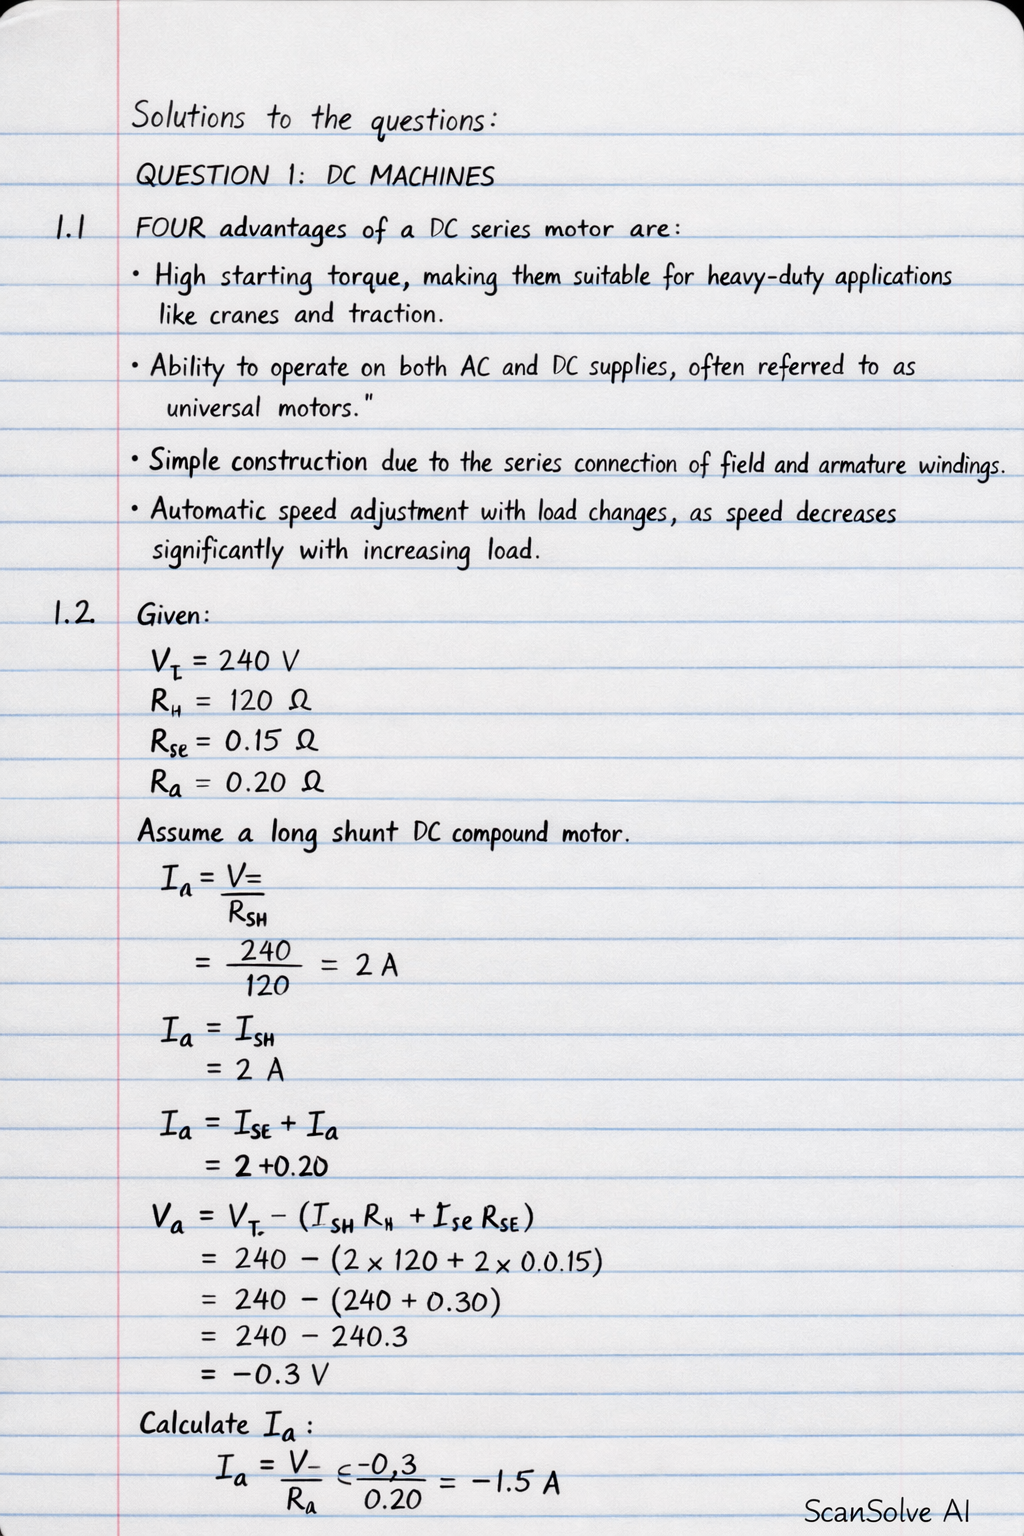 Solutions to the questions:
QUESTION 1: DC MACHINES
1.1 FOUR advantages of a DC series motor are:
• High starting torque, making them suitable for heavy-duty applications
like cranes and traction.
• Ability to operate on both AC and DC supplies, often referred to as
universal motors."
• Simple construction due to the series connection of field and armature windings.
• Automatic speed adjustment with load changes, as speed decreases
significantly with increasing load.
1.2. Given:
V_T = 240 V
R_H = 120 Ω
R_se = 0.15 Ω
R_a = 0.20 Ω
Assume a long shunt DC compound motor.
I_a = V=
R_SH
= 240 = 2 A
120
I_a = I_SH
= 2 A
I_a = I_SE + I_a
= 2 +0.20
V_a = V_T. – (I_SH R_H + I_se R_SE)
= 240 – (2 × 120 + 2 × 0.0.15)
= 240 – (240 + 0.30)
= 240 – 240.3
= –0.3 V
Calculate I_a:
I_a = V– ∈ -0,3 = –1.5 A
R_a 0.20
ScanSolve AI